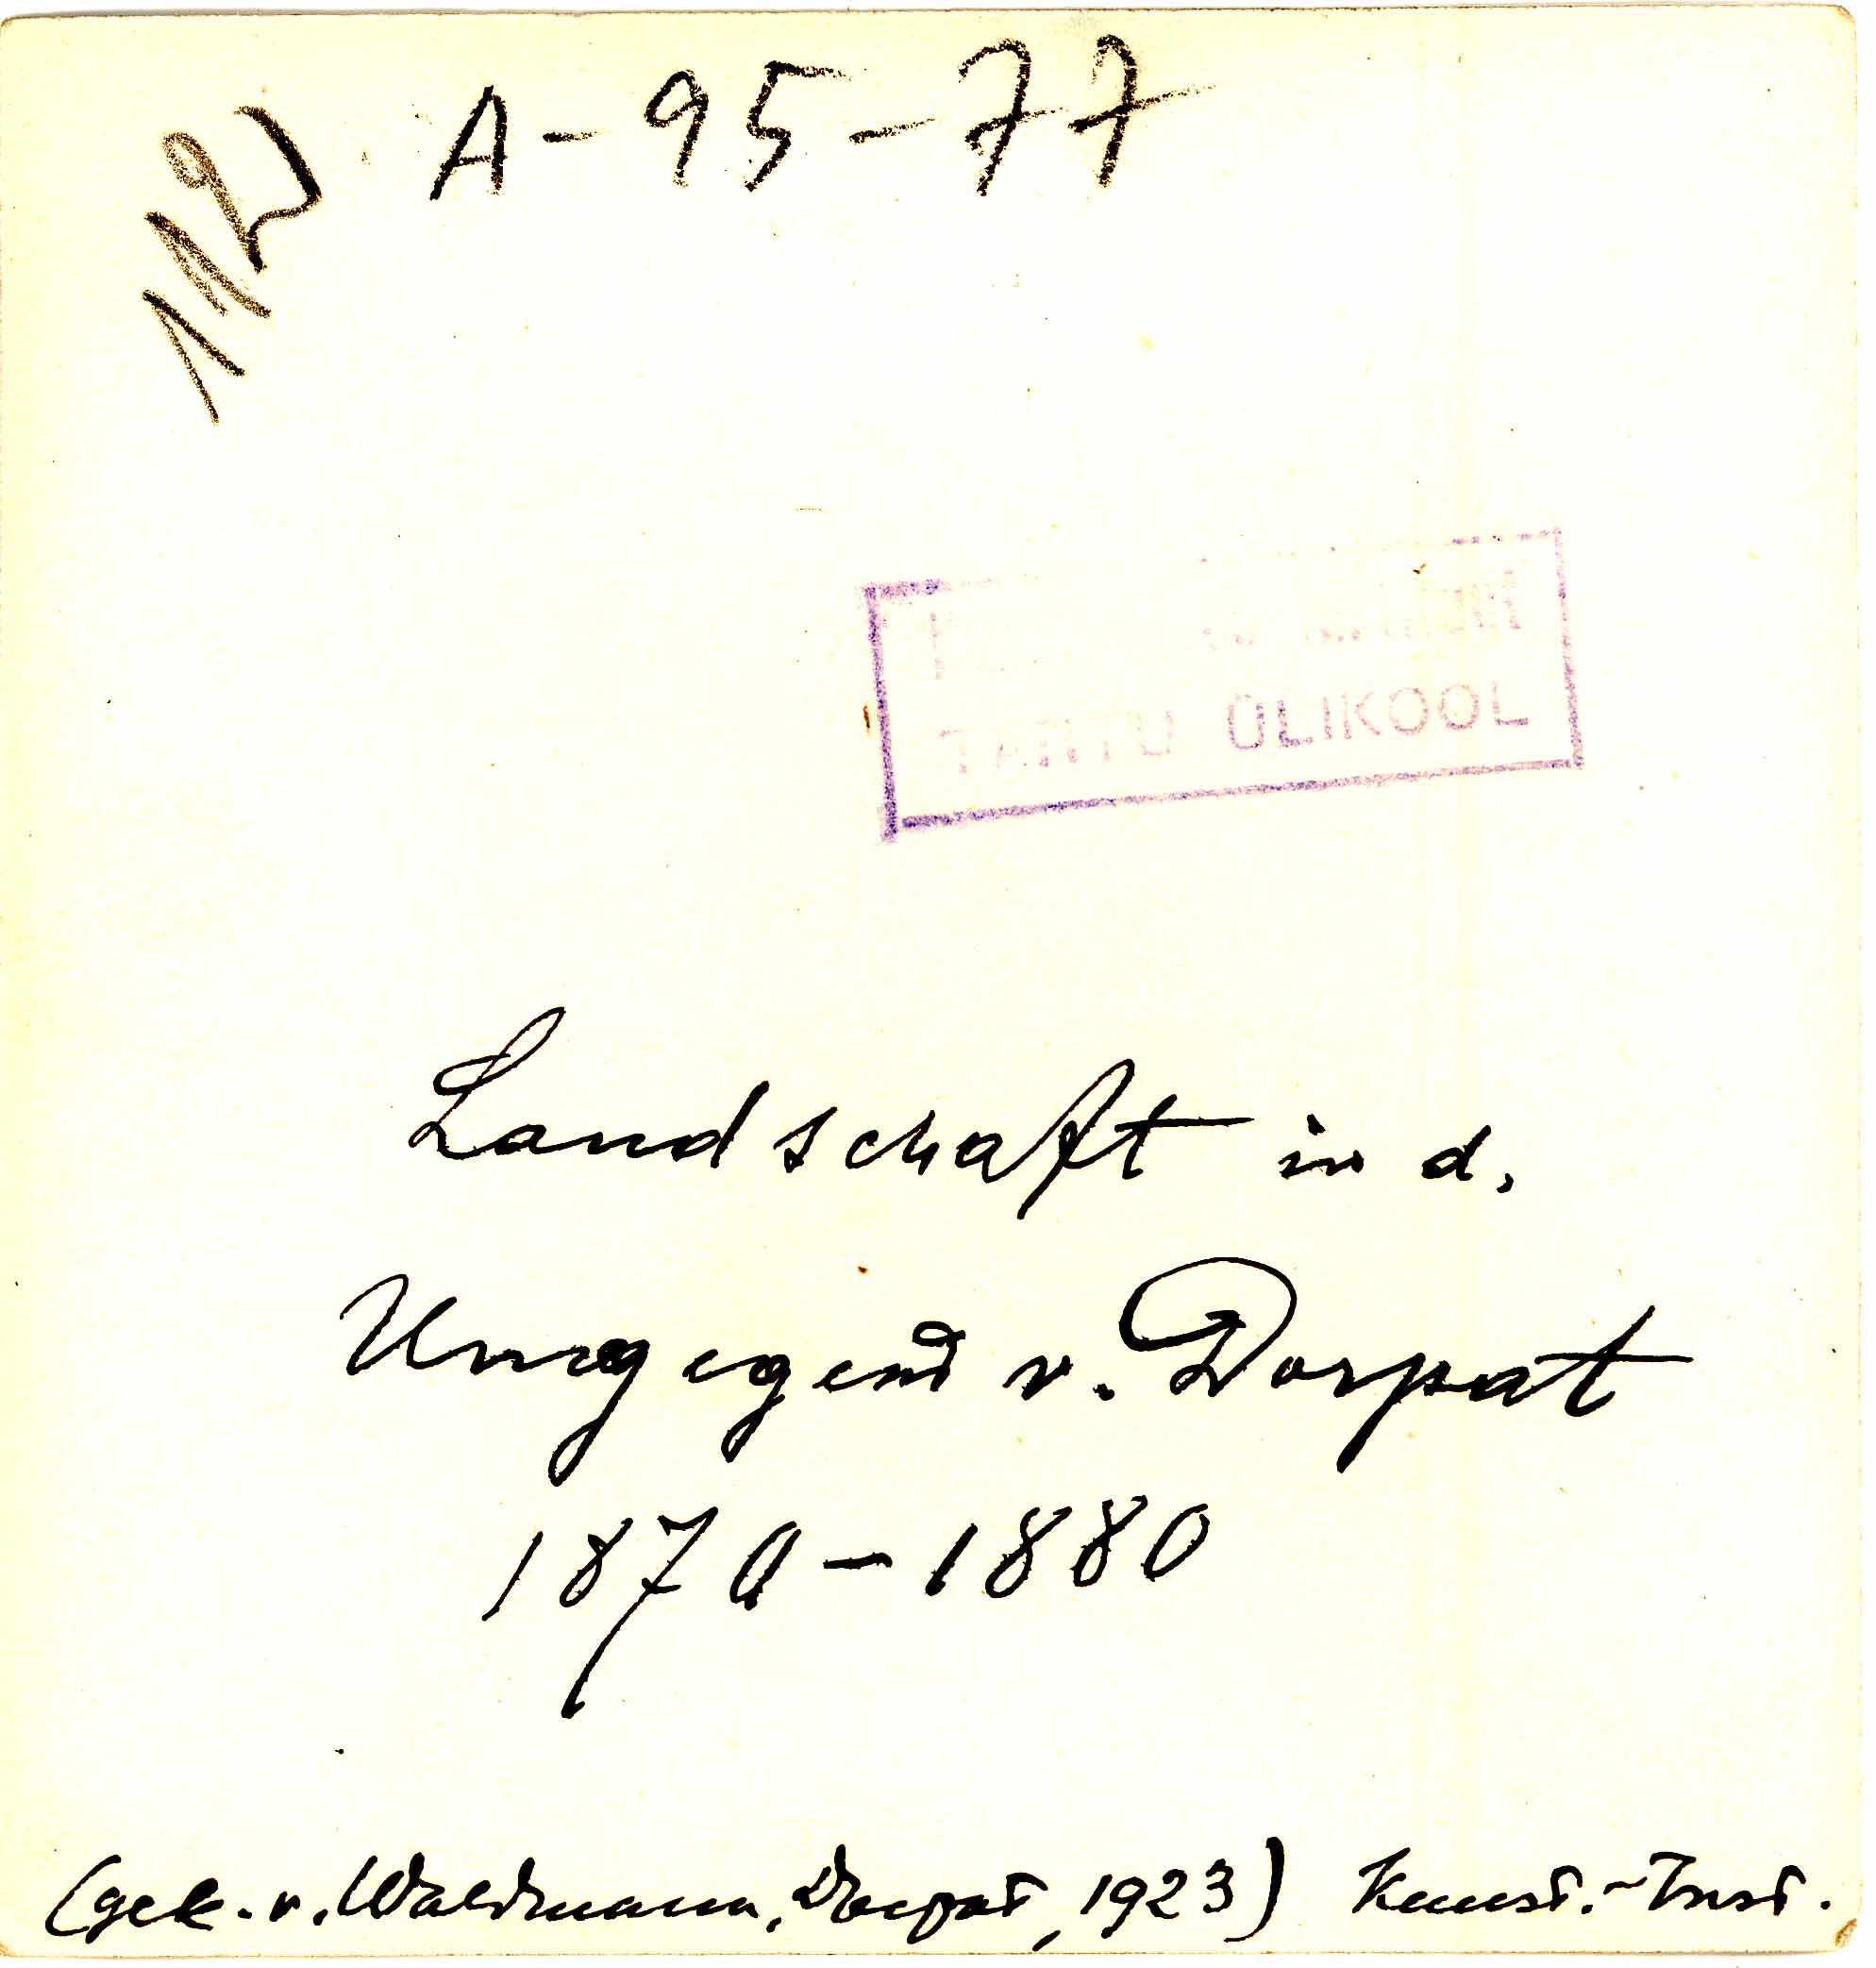 112
A-95-77
TARTU ÜLIKOOL
Landschaft in d.
Umgegend v. Dorpat
1870-1880
(gek. v. Waldmann, Dorpat, 1923) Kunst.-Inst.